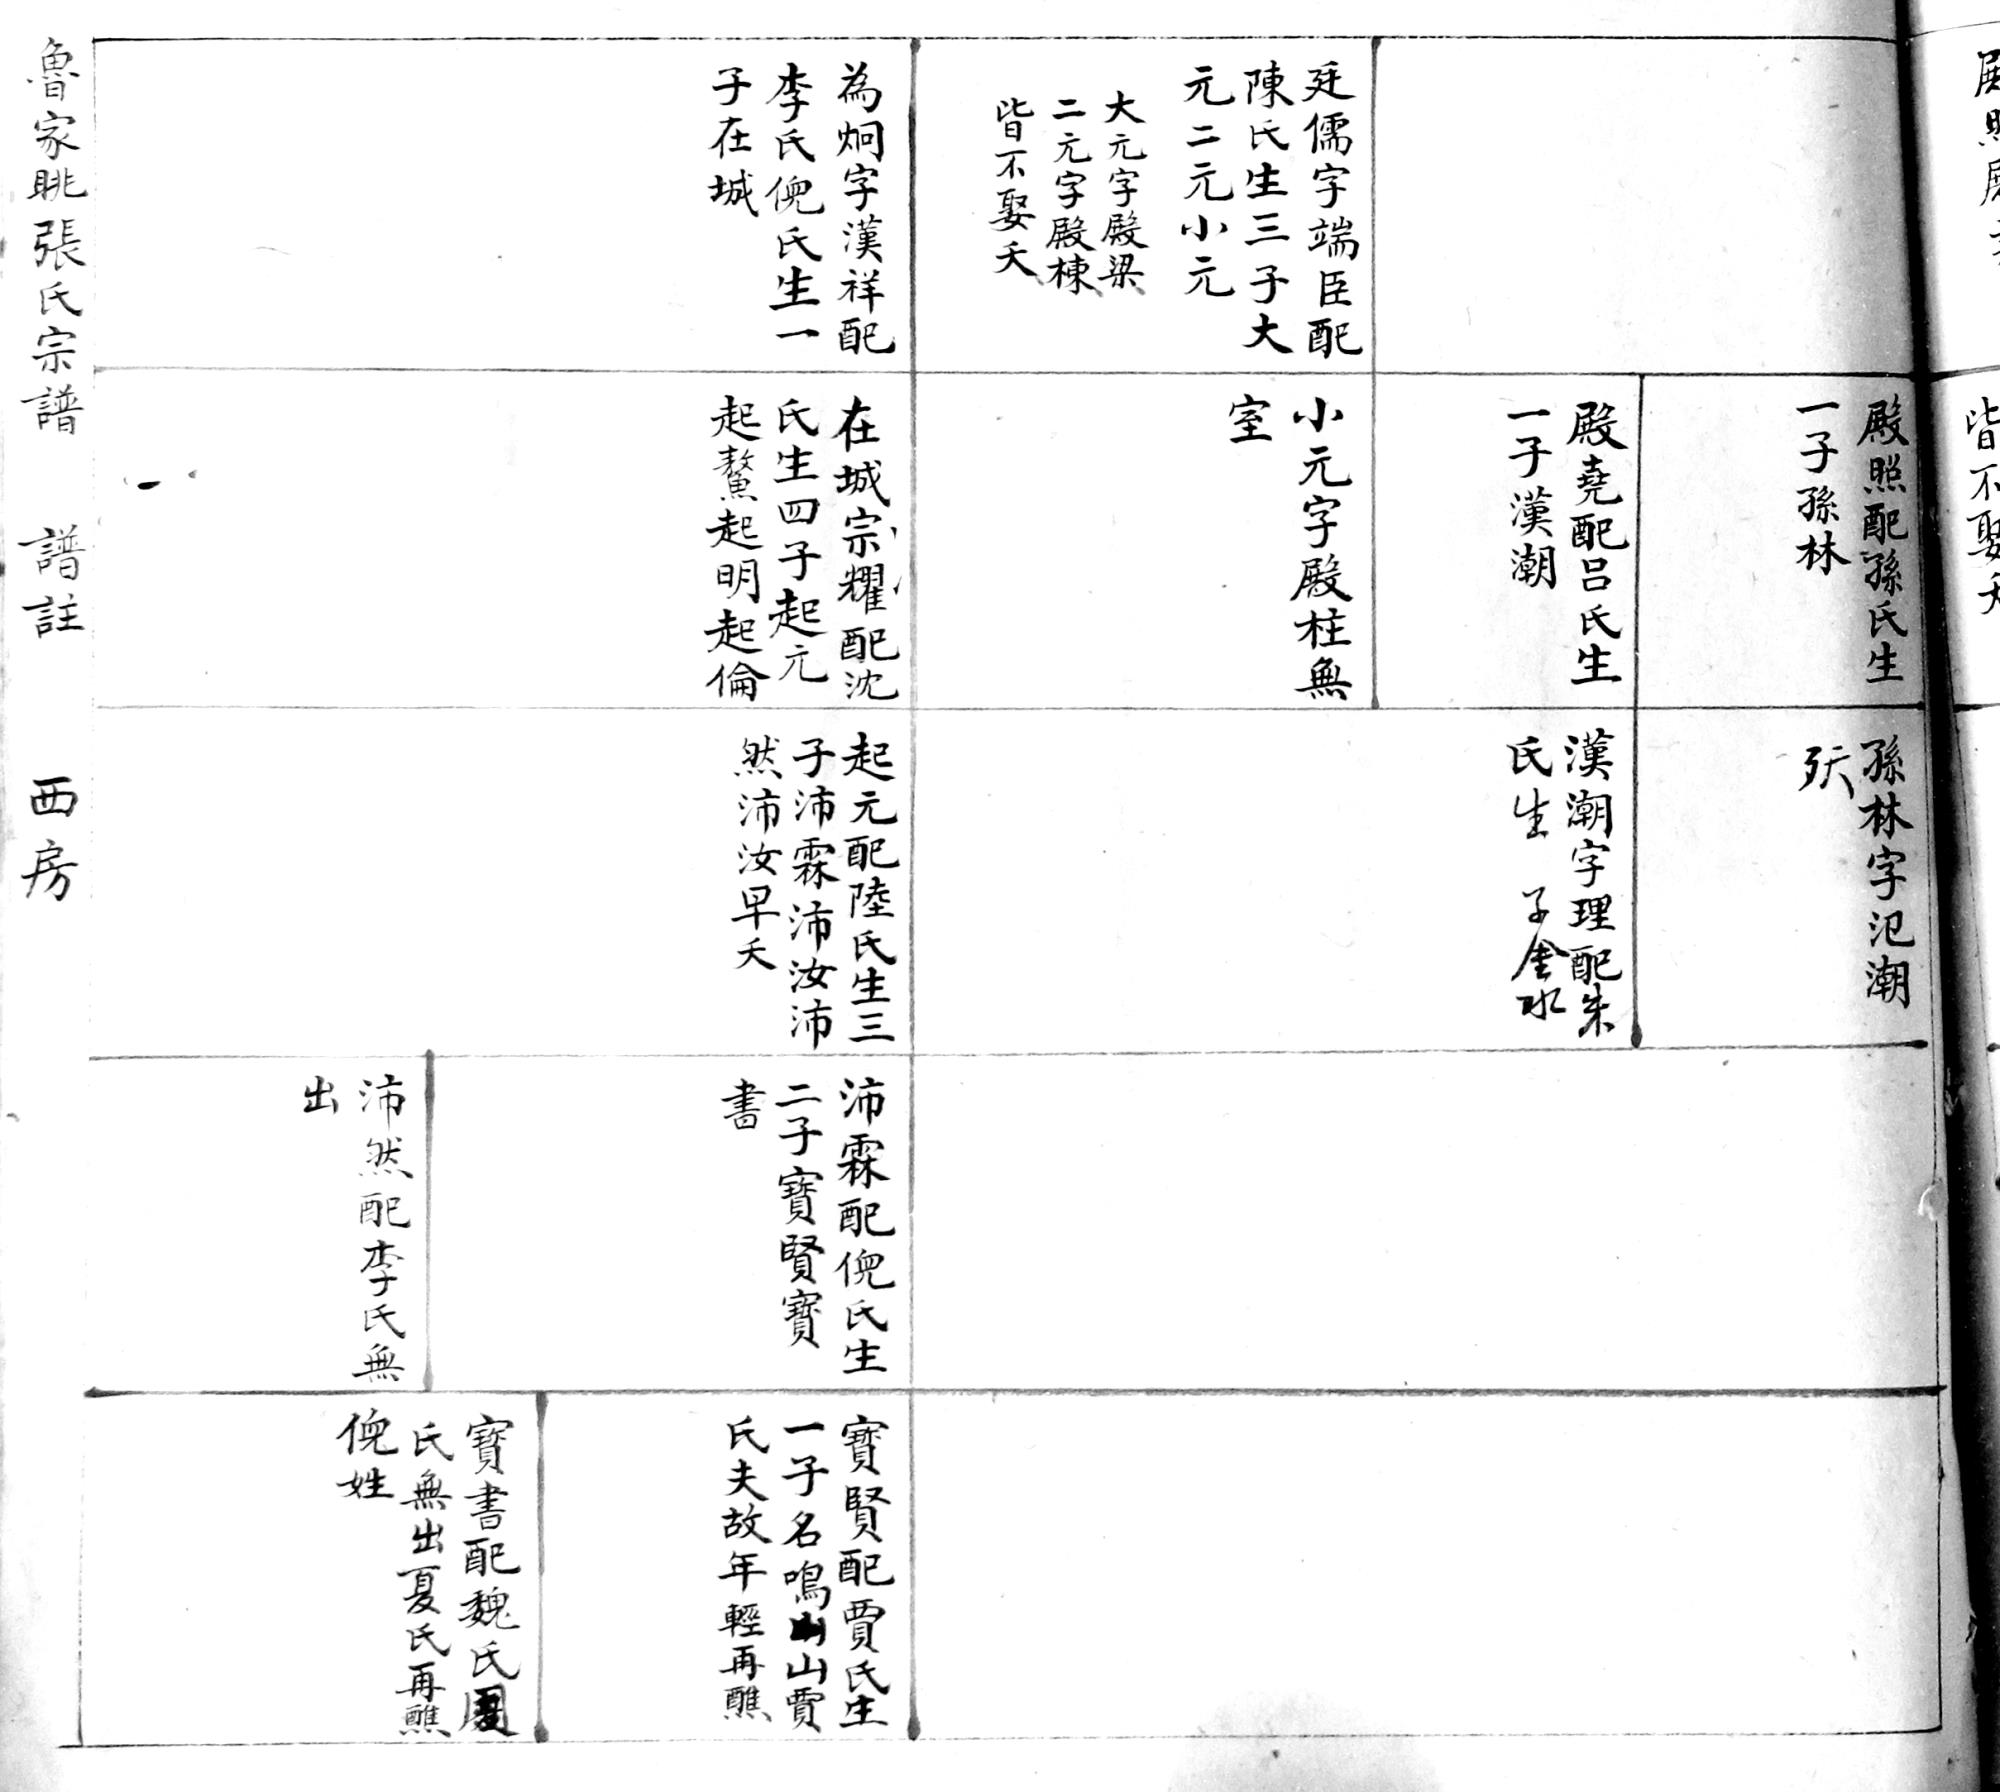 廷儒字端臣配
陳氏生三子大
元二元小元
大元字殿梁
二元字殿棟
皆不娶夭
為炯字漢祥配
李氏倪氏生一
子在城
皆不娶
殿照配孫氏生
一子孫林
殿堯配呂氏生
一子漢潮
小元字殿柱無
室
在城宗耀配沈
氏生四子起元
起鰲起明起倫
孫林字氾潮
殀
漢潮字理配朱
氏生 子金水
起元配陸氏生三
子沛霖沛汝沛
然沛汝早夭
沛霖配倪氏生
二子寶賢寶
書
沛然配李氏無
出
寶賢配賈氏生
一子名鳴山賈
氏夫故年輕再醮
寶書配魏氏
氏無出夏氏再醮
倪姓
魯家眺張氏宗譜 譜註 西房